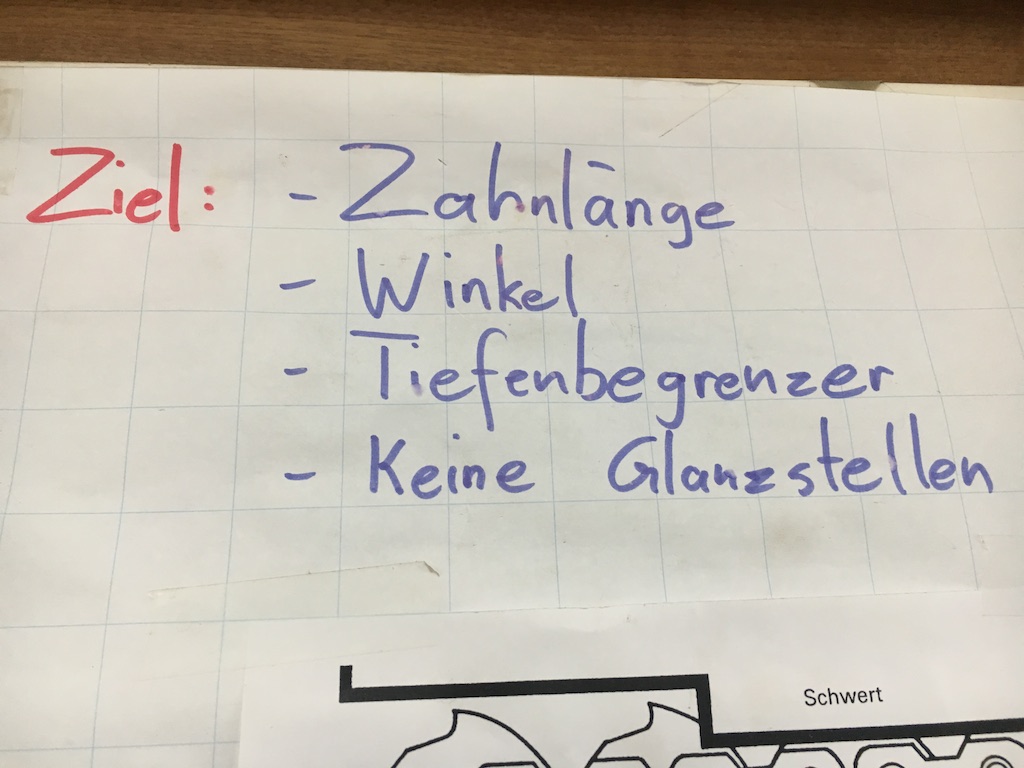 Ziel: - Zahnlänge
- Winkel
- Tiefenbegrenzer
- Keine Glanzstellen
Schwert